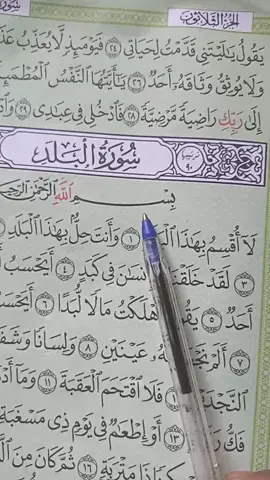 الجزء الثلاثون
يَقُولُ يَٰلَيْتَنِى قَدَّمْتُ لِحَيَاتِى ٢٤ فَيَوْمَئِذٍ لَّا يُعَذِّبُ
وَلَا يُوثِقُ وَثَاقَهُۥٓ أَحَدٌ ٢٦ يَٰٓأَيَّتُهَا ٱلنَّفْسُ
إِلَىٰ رَبِّكِ رَاضِيَةً مَّرْضِيَّةً ٢٨ فَٱدْخُلِى فِى عِبَٰدِى ٢٩
سُورَةُ الْبَلَدِ
بِسْمِ ٱللَّهِ ٱلرَّحْمَٰنِ
لَآ أُقْسِمُ بِهَٰذَا ١ وَأَنتَ حِلٌّۢ بِهَٰذَا ٱلْبَلَدِ
٣ لَقَدْ خَلَقْنَا فِى كَبَدٍ ٤ أَيَحْسَبُ
أَحَدٌ ٥ أَهْلَكْتُ مَالًا لُّبَدًا ٦
٧ أَلَمْ عَيْنَيْنِ ٨ وَلِسَانًا
١١ فَلَا ٱقْتَحَمَ ٱلْعَقَبَةَ
فَكُّ ١٣ أَوْ إِطْعَٰمٌ فِى يَوْمٍ ذِى مَسْغَبَةٍ
ذَا مَتْرَبَةٍ ١٦ ثُمَّ كَانَ مِنَ